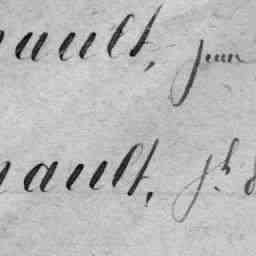 nault, jean
nault, Jh